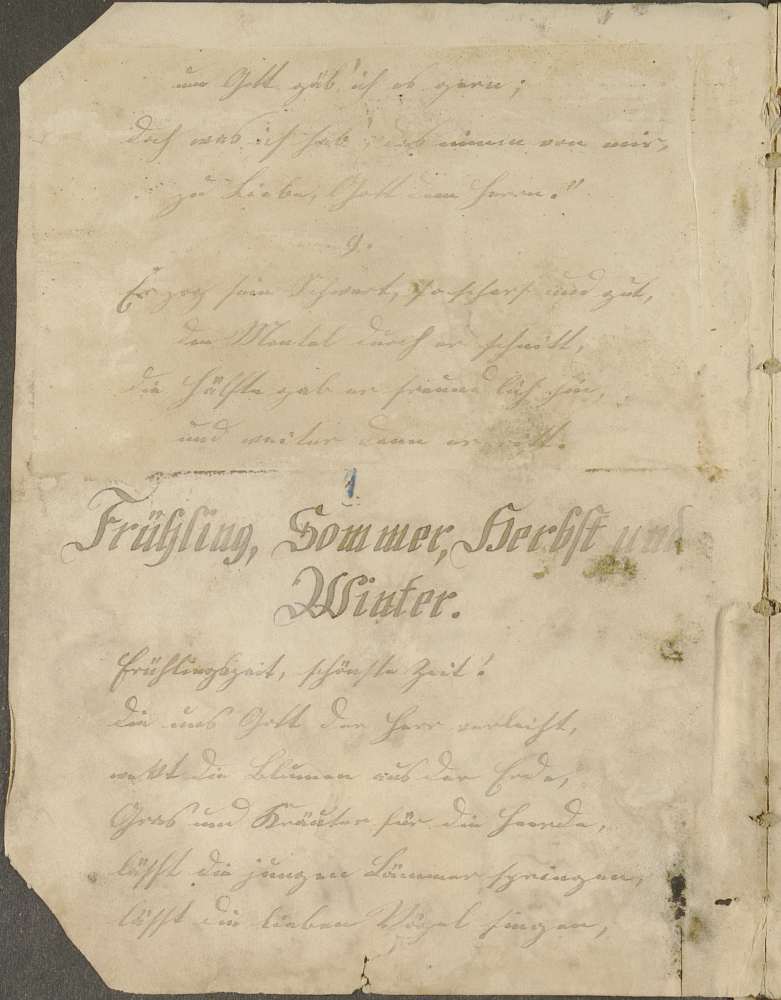 um Gott gäb' ich es gern;
doch was ich hab', das nimm von mir,
zu Liebe, Gott dem Herrn."
9.
Er zog sein Schwert, so scharf und gut,
den Mantel durch er schnitt,
die Hälfte gab er freundlich hin,
und weiter dann er ritt.
1
Frühling, Sommer, Herbst und
Winter.
Frühlingszeit, schönste Zeit!
die uns Gott der Herr verleiht,
weckt die Blumen aus der Erde,
Gras und Kräuter für die Heerde,
läßt die jungen Lämmer springen,
läßt die lieben Vögel singen,